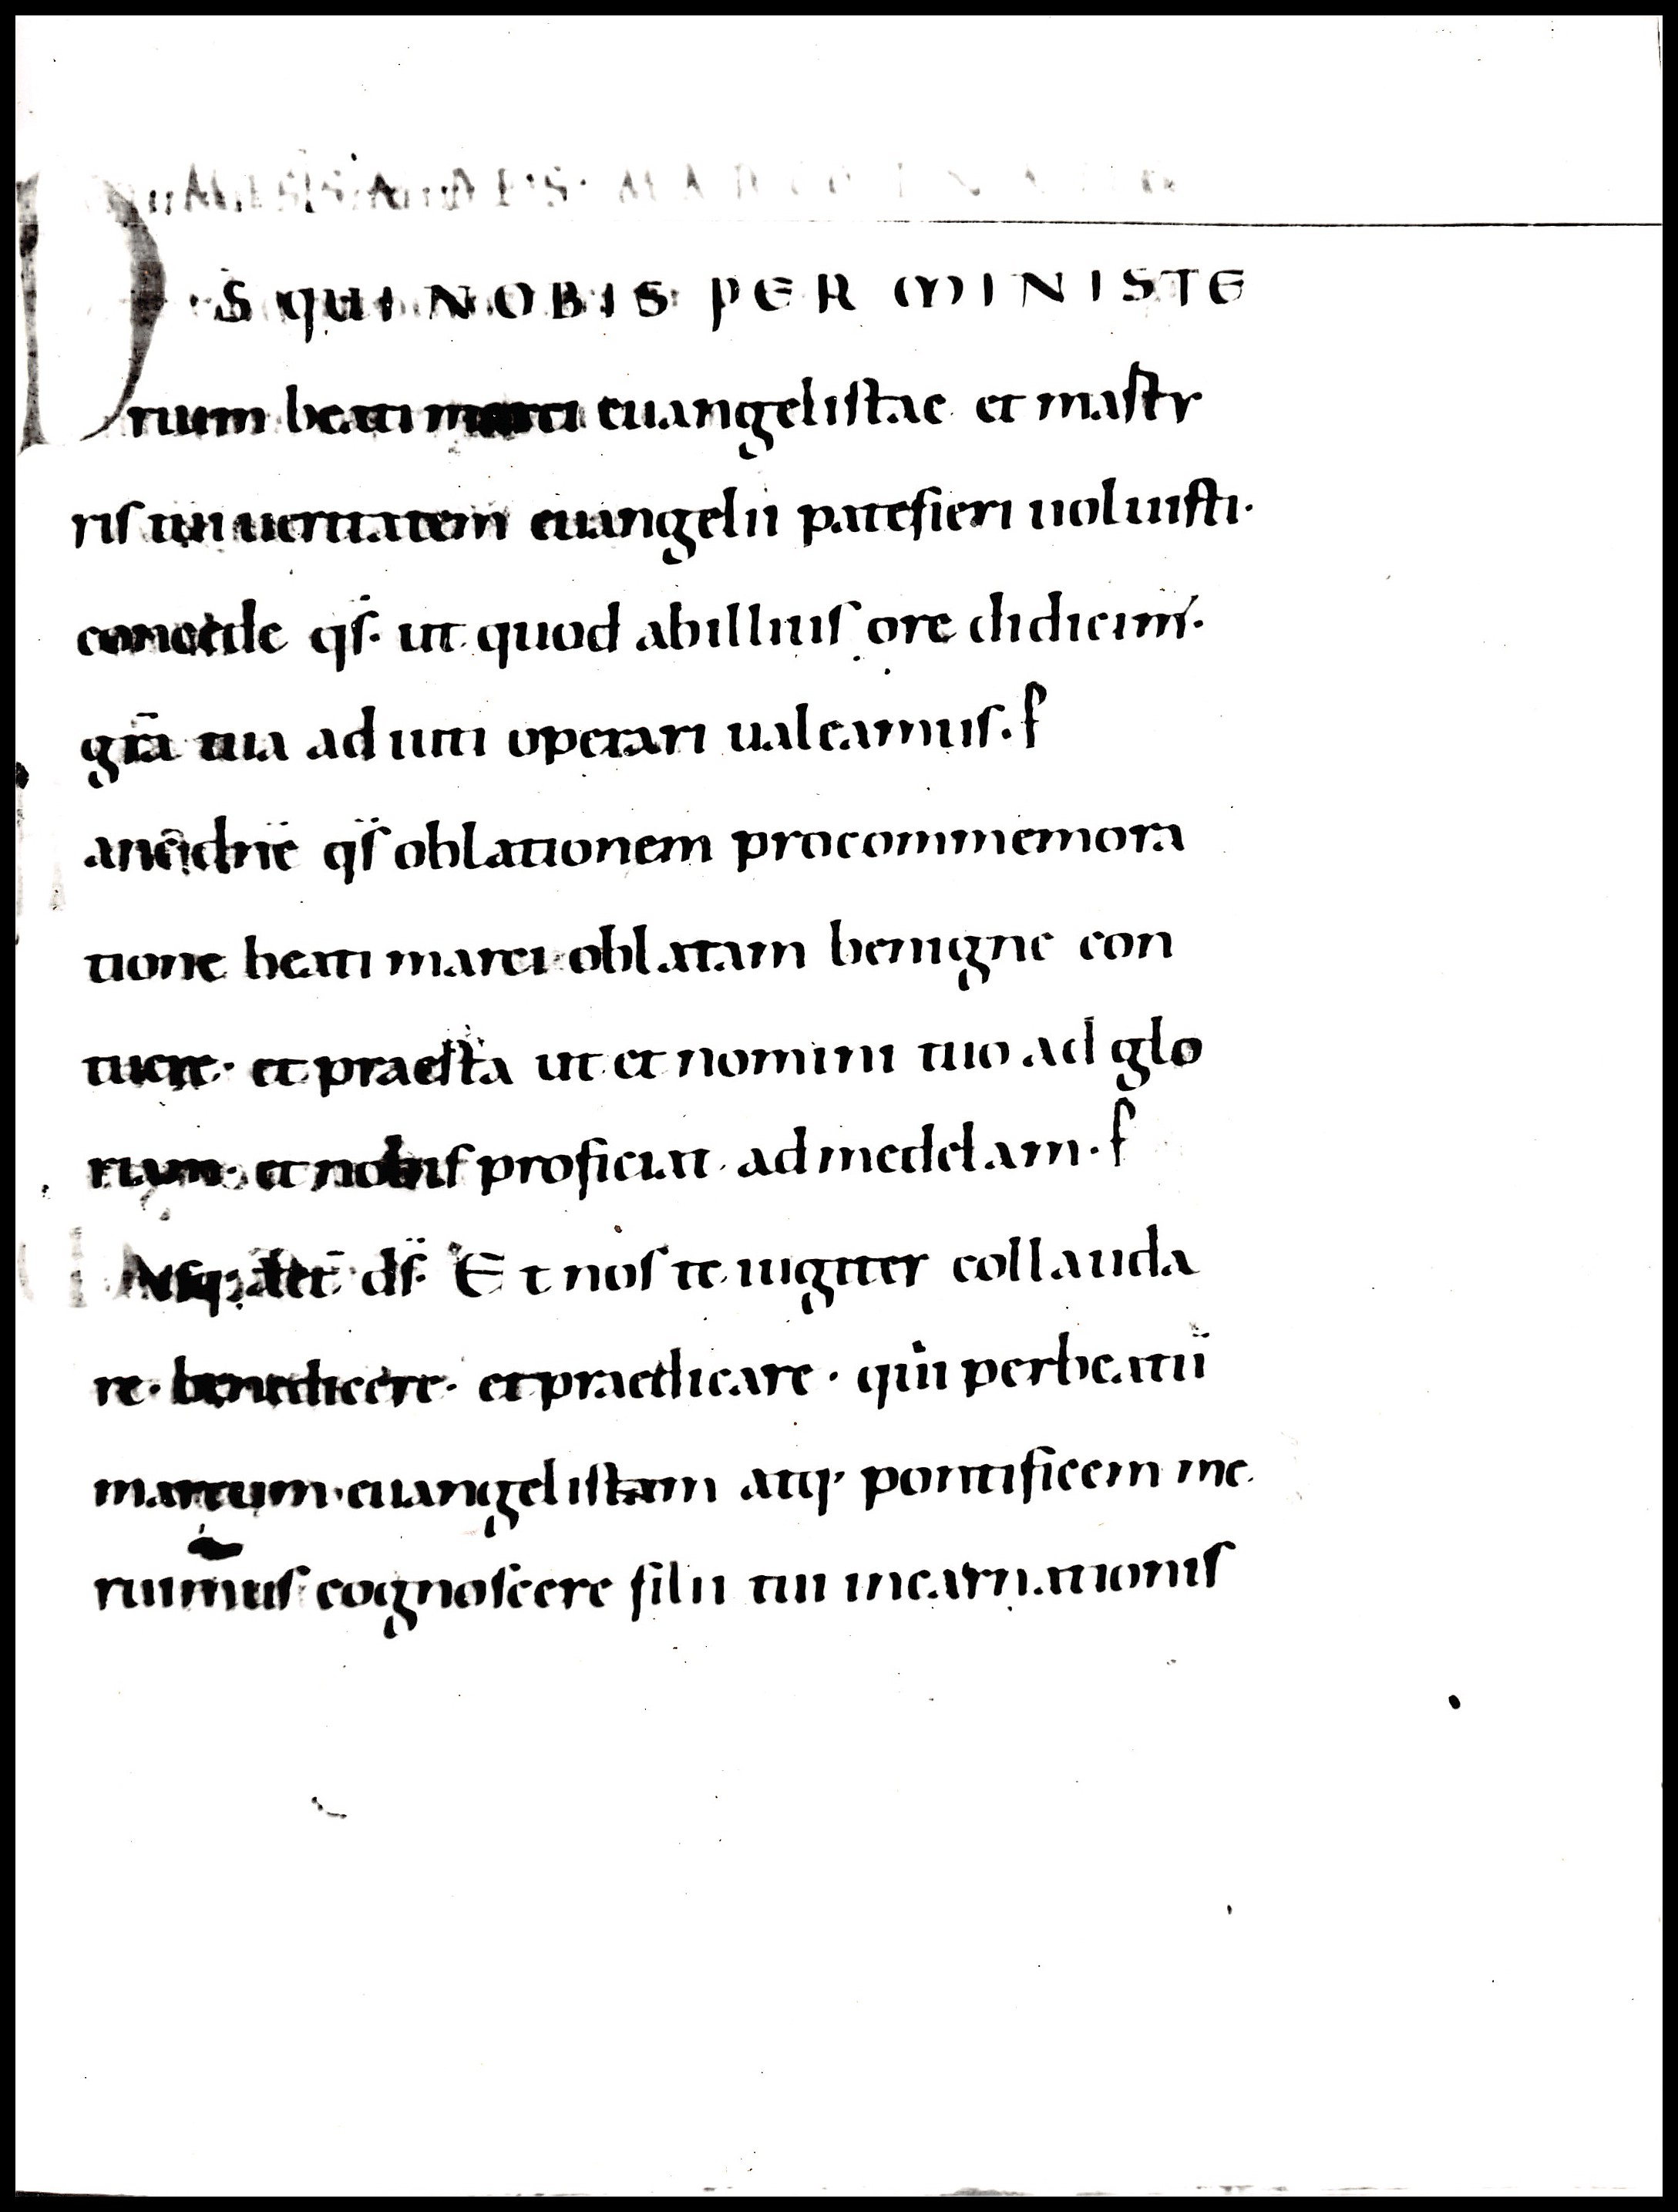 DS QUI NOBIS PER MINISTE
rium beati marci euangelistae et mar̅ty
ris tui ueritatem euangelii patefieri uoluisti·
concede qs̄· ut quod ab illius ore didicim̄·
gr̄a tua adiuti operari ualeamus·
dn̄e qs̄ oblationem pro commemora
tione beati marci oblatam benigne con
tuere· et praesta ut et nomini tuo ad glo
riam· et nobis proficiat ad medelam·
d̄s· Et nos te iugiter collauda
re· benedicere· et praedicare· qui per beatū
marcum· euangelistam atq· pontificem me
ruimus cognoscere filii tui incarnationis